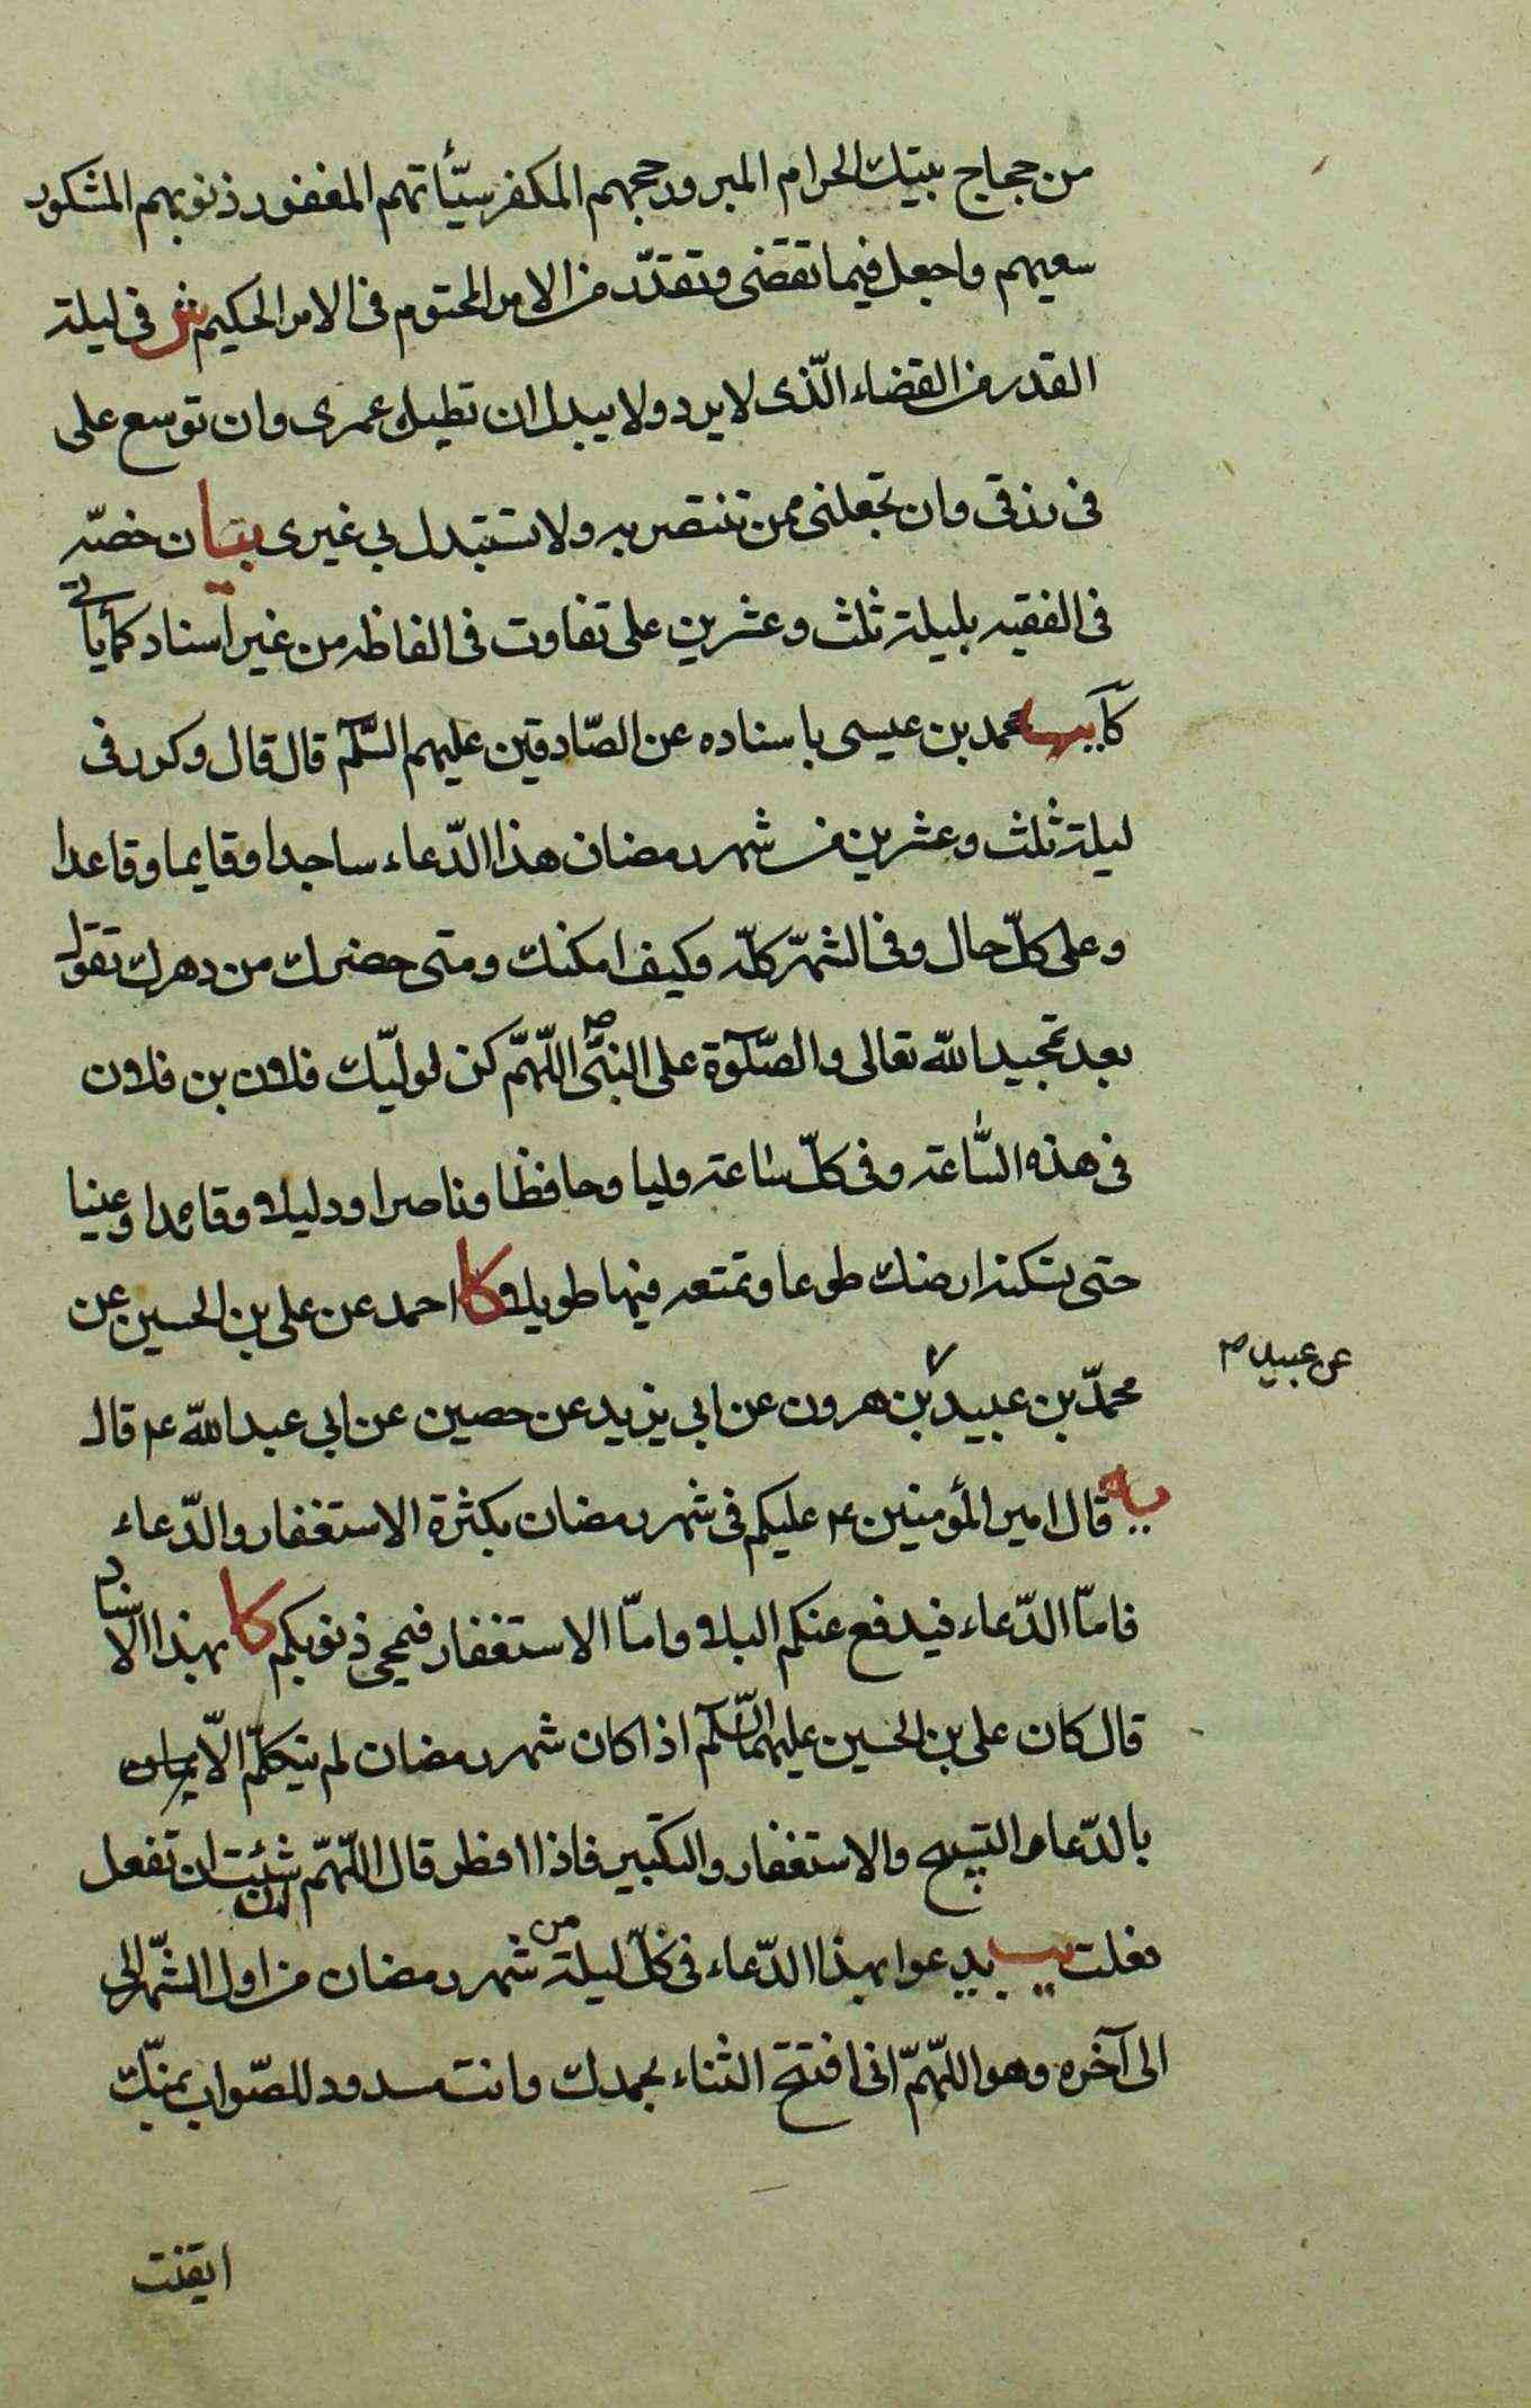 من حجاج بيتك الحرام المبرور حجهم المكفر سيّأتهم المغفور ذنوبهم المشكور
سعيهم واجعل فيما تقضى وتقدّر من الامر المحتوم فى الامر الحكيم ش فى ليلة
القدر من القضاء الّذى لا يرد ولا يبدل ان تطيل عمرى وان توسع على
فى رزقى وان تجعلنى ممن تنتصر به ولا تستبدل بى غيرى بيان خصّه
فى الفقيه بليلة ثلث وعشرين على تفاوت فى الفاظه من غير اسناد كما يأتى
كا يب محمد بن عيسى باسناده عن الصّادقين عليهم السّلم قال قال وكرر فى
ليلة ثلث وعشرين من شهر رمضان هذا الدّعاء ساجدا وقايما وقاعدا
وعلى كلّ حال وفى الشهر كلّه وكيف امكنك ومتى حضرك من دهرك تقول
بعد تمجيد الله تعالى والصّلوة على النبىّ ص اللّهمّ كن لوليّك فلان بن فلان
فى هذه السّاعة وفى كلّ ساعة وليا وحافظا وناصرا ودليلا وقائدا وعينا
حتى تسكنه ارضك طوعا وتمتعه فيها طويلا كا احمد عن على بن الحسين عن
محمّد بن عبيد بن هرون عن ابى يزيد عن حصين عن ابى عبد الله ع قال
عن عبيد ص
يه قال امير المؤمنين ع عليكم فى شهر رمضان بكثرة الاستغفار والدّعاء
فامّا الدّعاء فيدفع عنكم البلاء وامّا الاستغفار فيمحى ذنوبكم كا بهذا الاسناد
قال كان على بن الحسين عليهما السّلم اذا كان شهر رمضان لم يتكلّم الّا
بالدّعاء والتسبيح والاستغفار والتكبير فاذا افطر قال اللّهمّ ان شئت ان تفعل
فعلت يب يدعوا بهذا الدّعاء فى كلّ ليلة من شهر رمضان من اول الشّهر الى
الى آخره وهو اللّهمّ انى افتتح الثناء بحمدك وانت مسدود للصّواب بمنّك
ايقنت